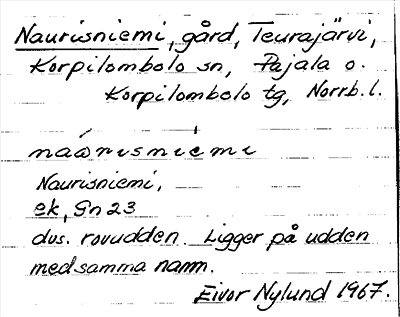 Naurisniemi, gård, Teurajärvi,
Korpilombolo sn, Pajala o.
Korpilombolo tg, Norrb. l.
náǝrisníemi
Naurisniemi,
ek, Gn 23
dvs. rovudden. Ligger på udden
med samma namn.
Eivor Nylund 1967.